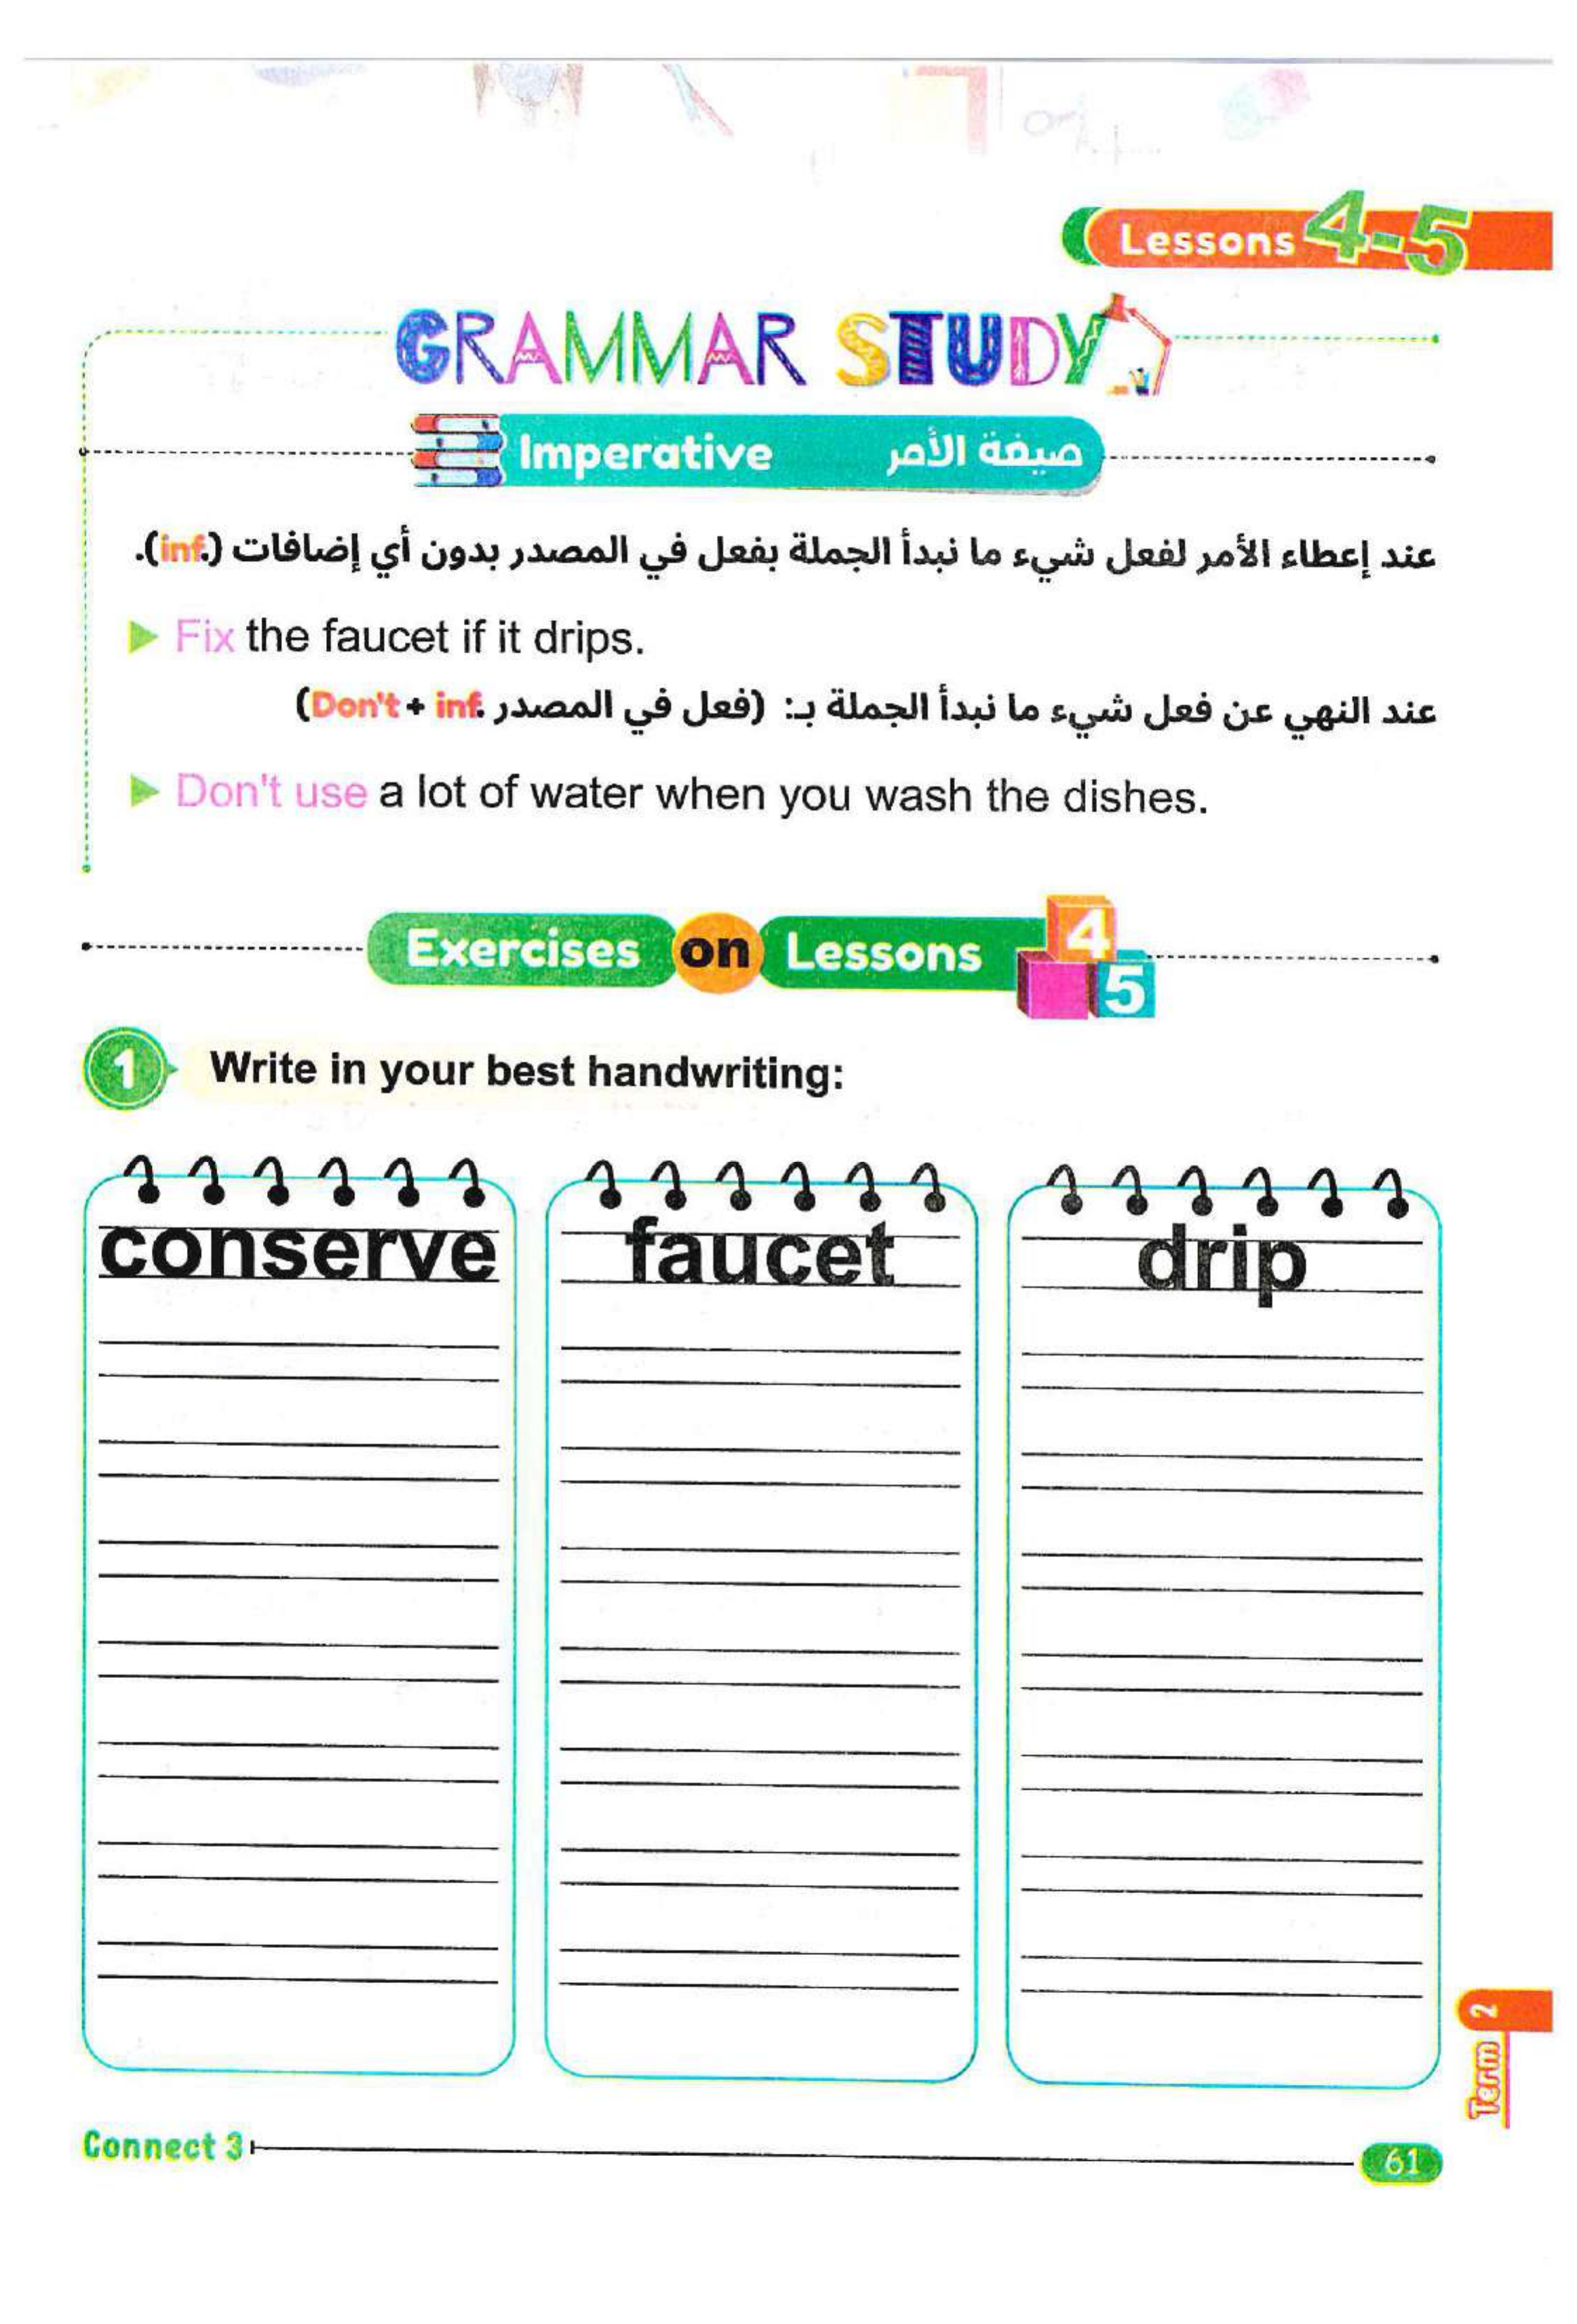 Lessons 4-5
GRAMMAR STUDY
Imperative صيغة الأمر
عند إعطاء الأمر لفعل شيء ما نبدأ الجملة بفعل في المصدر بدون أي إضافات (inf.).
Fix the faucet if it drips.
عند النهي عن فعل شيء ما نبدأ الجملة بـ: (فعل في المصدر Don't + inf.)
Don't use a lot of water when you wash the dishes.
Exercises on Lessons 4 5
1 Write in your best handwriting:
conserve faucet drip
Term 2
Connect 3 61